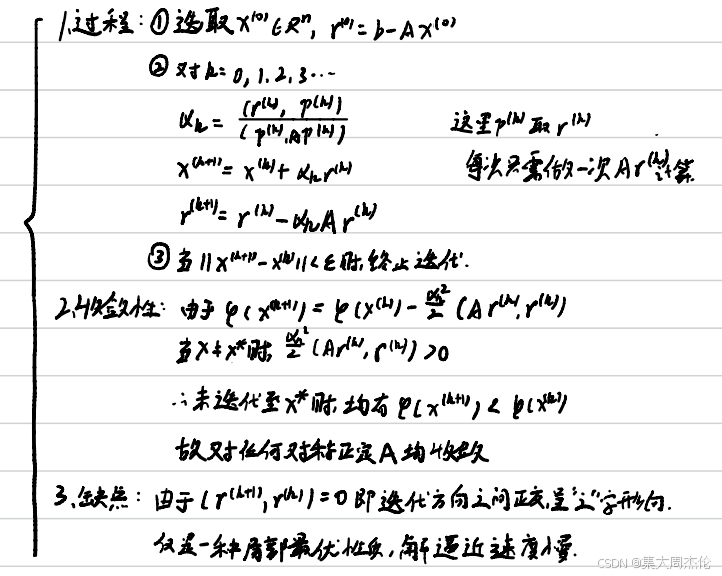 1.过程：① 选取 x⁽⁰⁾∈Rⁿ, r⁽⁰⁾=b-Ax⁽⁰⁾
② 对k=0,1,2,3…
αₖ = (r⁽ᵏ⁾, p⁽ᵏ⁾) / (p⁽ᵏ⁾, Ap⁽ᵏ⁾)
这里p⁽ᵏ⁾取r⁽ᵏ⁾
x⁽ᵏ⁺¹⁾ = x⁽ᵏ⁾ + αₖr⁽ᵏ⁾
每次只需做一次Ar⁽ᵏ⁾计算.
r⁽ᵏ⁺¹⁾ = r⁽ᵏ⁾ - αₖAr⁽ᵏ⁾
③ 当||x⁽ᵏ⁺¹⁾-x⁽ᵏ⁾||<ε时,终止迭代.
2.收敛性：由于 φ(x⁽ᵏ⁺¹⁾) = φ(x⁽ᵏ⁾) - αₖ²/2 (Ar⁽ᵏ⁾, r⁽ᵏ⁾)
当x≠x*时, αₖ²/2 (Ar⁽ᵏ⁾, r⁽ᵏ⁾) >0
∴未迭代至x*时,均有φ(x⁽ᵏ⁺¹⁾) < φ(x⁽ᵏ⁾)
故对任何对称正定A均收敛
3.缺点：由于(r⁽ᵏ⁺¹⁾, r⁽ᵏ⁾)=0即迭代方向之间正交,呈"之"字形向.
仅是一种局部最优性质,解逼近速度慢.
CSDN @集大周杰伦